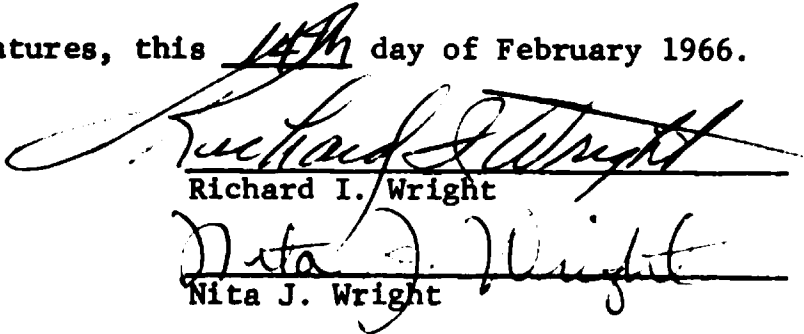 atures, this 14th day of February 1966.
Richard I Wright
Richard I. Wright
Nita J. Wright
Nita J. Wright